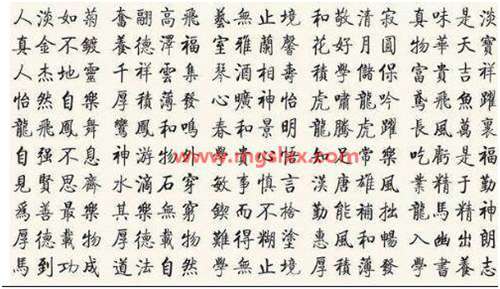 人淡如菊 奮翮高飛 藝無止境 和敬清寂 真味是淡
真金不鍍 養德澤福 室雅蘭馨 花好月圓 物華天寶
人杰地靈 千祥雲集 琴酒相壽 積學儲保 富貴吉祥
怡然自樂 厚積薄發 心曠神怡 虎嘯龍吟 鳶飛魚躍
龍飛鳳舞 鸞鳳和鳴 春和景明 龍騰虎躍 長風萬裏
自强不息 神游物外 心 怡 知足常樂 吃虧是福
www.mgslzx.com
見賢思齊 水滴石穿 敏事慎言 漢唐雄風 業精于勤
爲善最樂 其樂無窮 鍥而不捨 勤能補拙 龍馬精神
厚德載物 厚德載物 難得糊塗 惠風和暢 入幽出朗
馬到功成 道法自然 學無止境 厚積薄發 學書養志